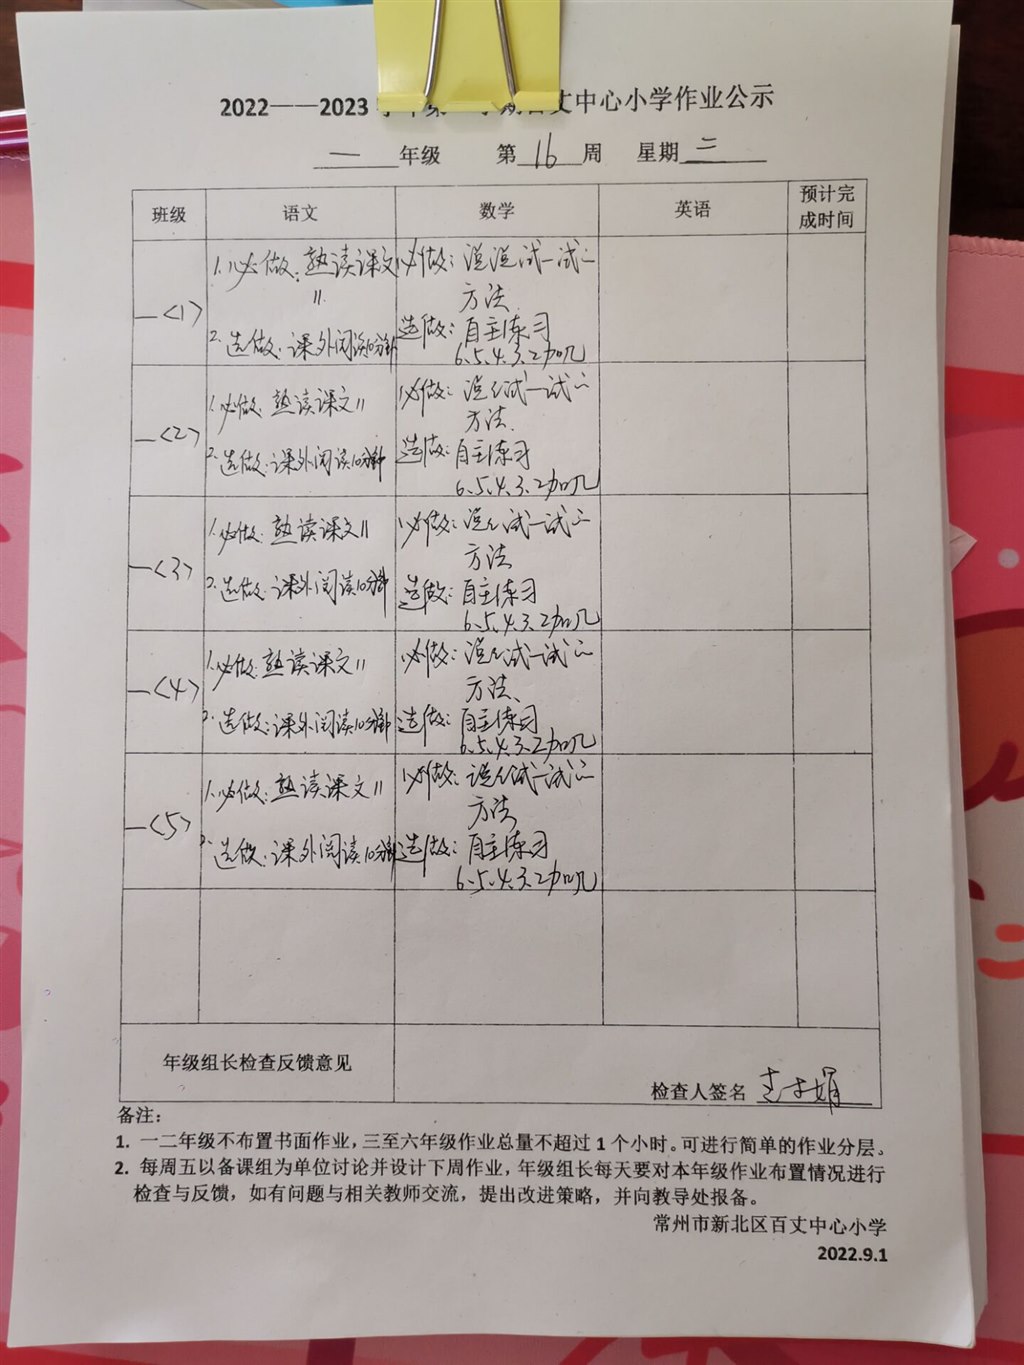 2022——2023 中心小学作业公示
一 年级 第 16 周 星期 二
班级 语文 数学 英语 预计完成时间
一<1>
1.必做:熟读课文11
2.选做:课外阅读10分钟
必做:说说试一试的
方法.
选做:自主练习
6、5、4、3、2加几
一<2>
1.必做:熟读课文11
2.选做:课外阅读10分钟
必做:说说试一试的
方法.
选做:自主练习
6、5、4、3、2加几
一<3>
1.必做:熟读课文11
2.选做:课外阅读10分钟
必做:说说试一试的
方法
选做:自主练习
6、5、4、3、2加几
一<4>
1.必做:熟读课文11
2.选做:课外阅读10分钟
必做:说说试一试的
方法、
选做:自主练习
6、5、4、3、2加几
一<5>
1.必做:熟读课文11
2.选做:课外阅读10分钟
必做:说说试一试的
方法
选做:自主练习
6、5、4、3、2加几
年级组长检查反馈意见
检查人签名
备注:
1. 一二年级不布置书面作业,三至六年级作业总量不超过 1 个小时。可进行简单的作业分层。
2. 每周五以备课组为单位讨论并设计下周作业,年级组长每天要对本年级作业布置情况进行
检查与反馈,如有问题与相关教师交流,提出改进策略,并向教导处报备。
常州市新北区百丈中心小学
2022.9.1